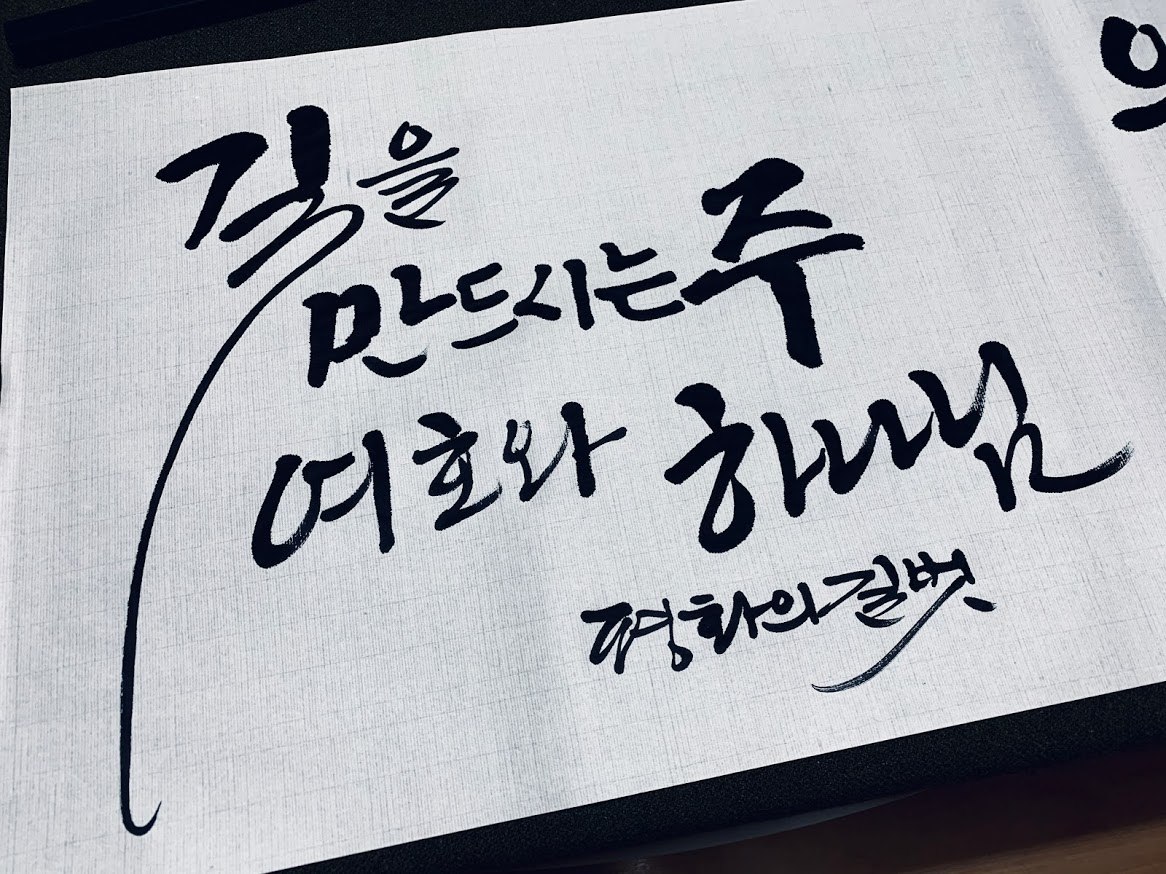 길을
만드시는 주
여호와 하나님
평화의 길벗